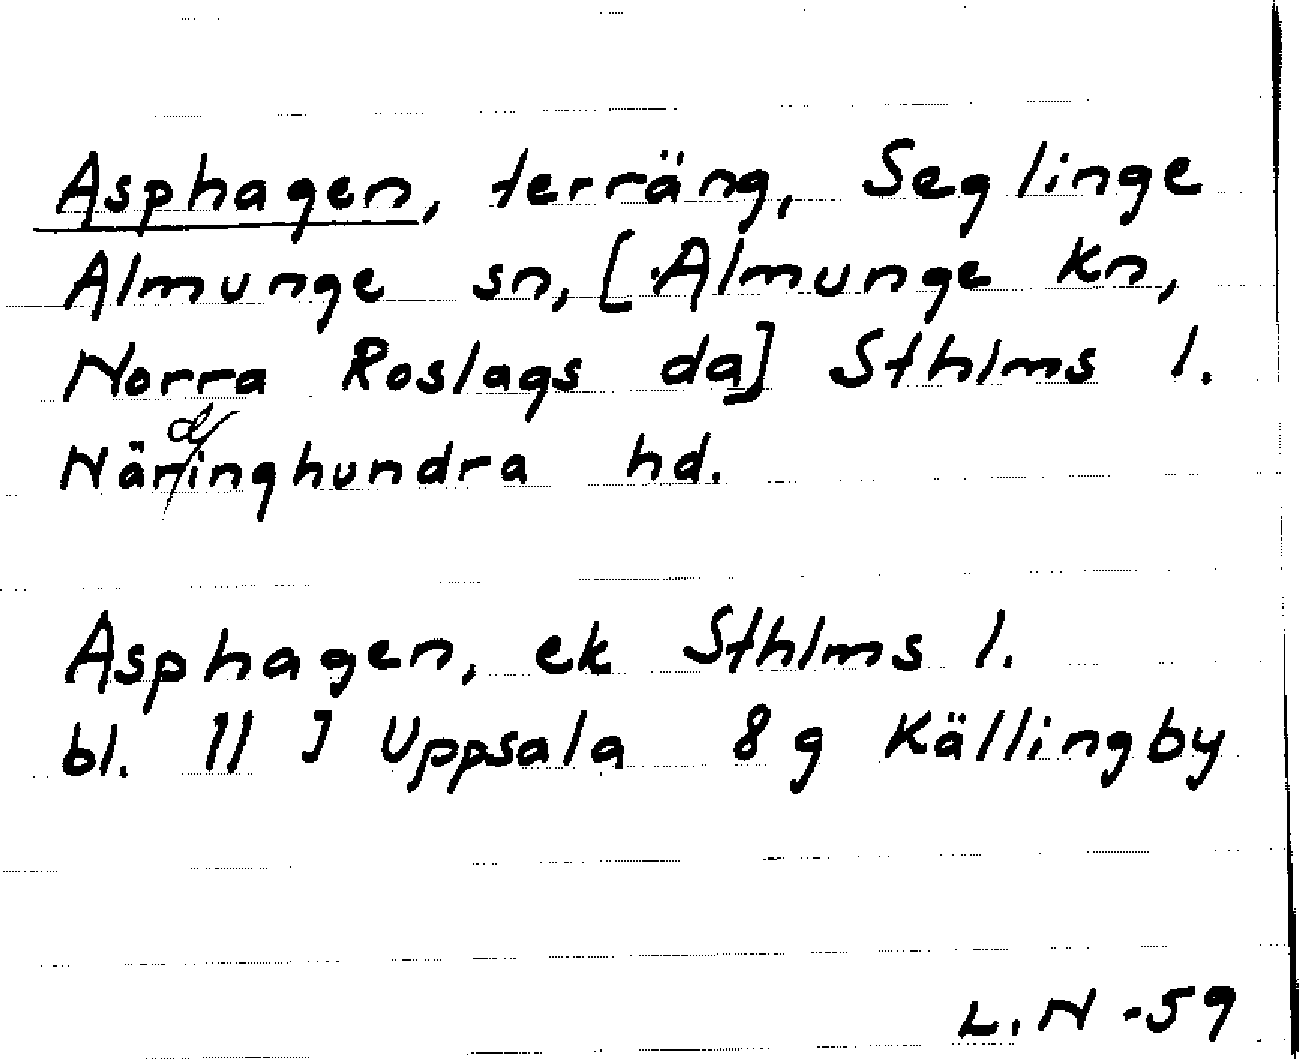 Asphagen, terräng, Seglinge
Almunge sn, [Almunge kn,
Norra Roslags da] Sthlms l.
Näringhundra hd.
Asphagen, ek Sthlms l.
bl. 11 J Uppsala 8 g Källingby
L.N -59